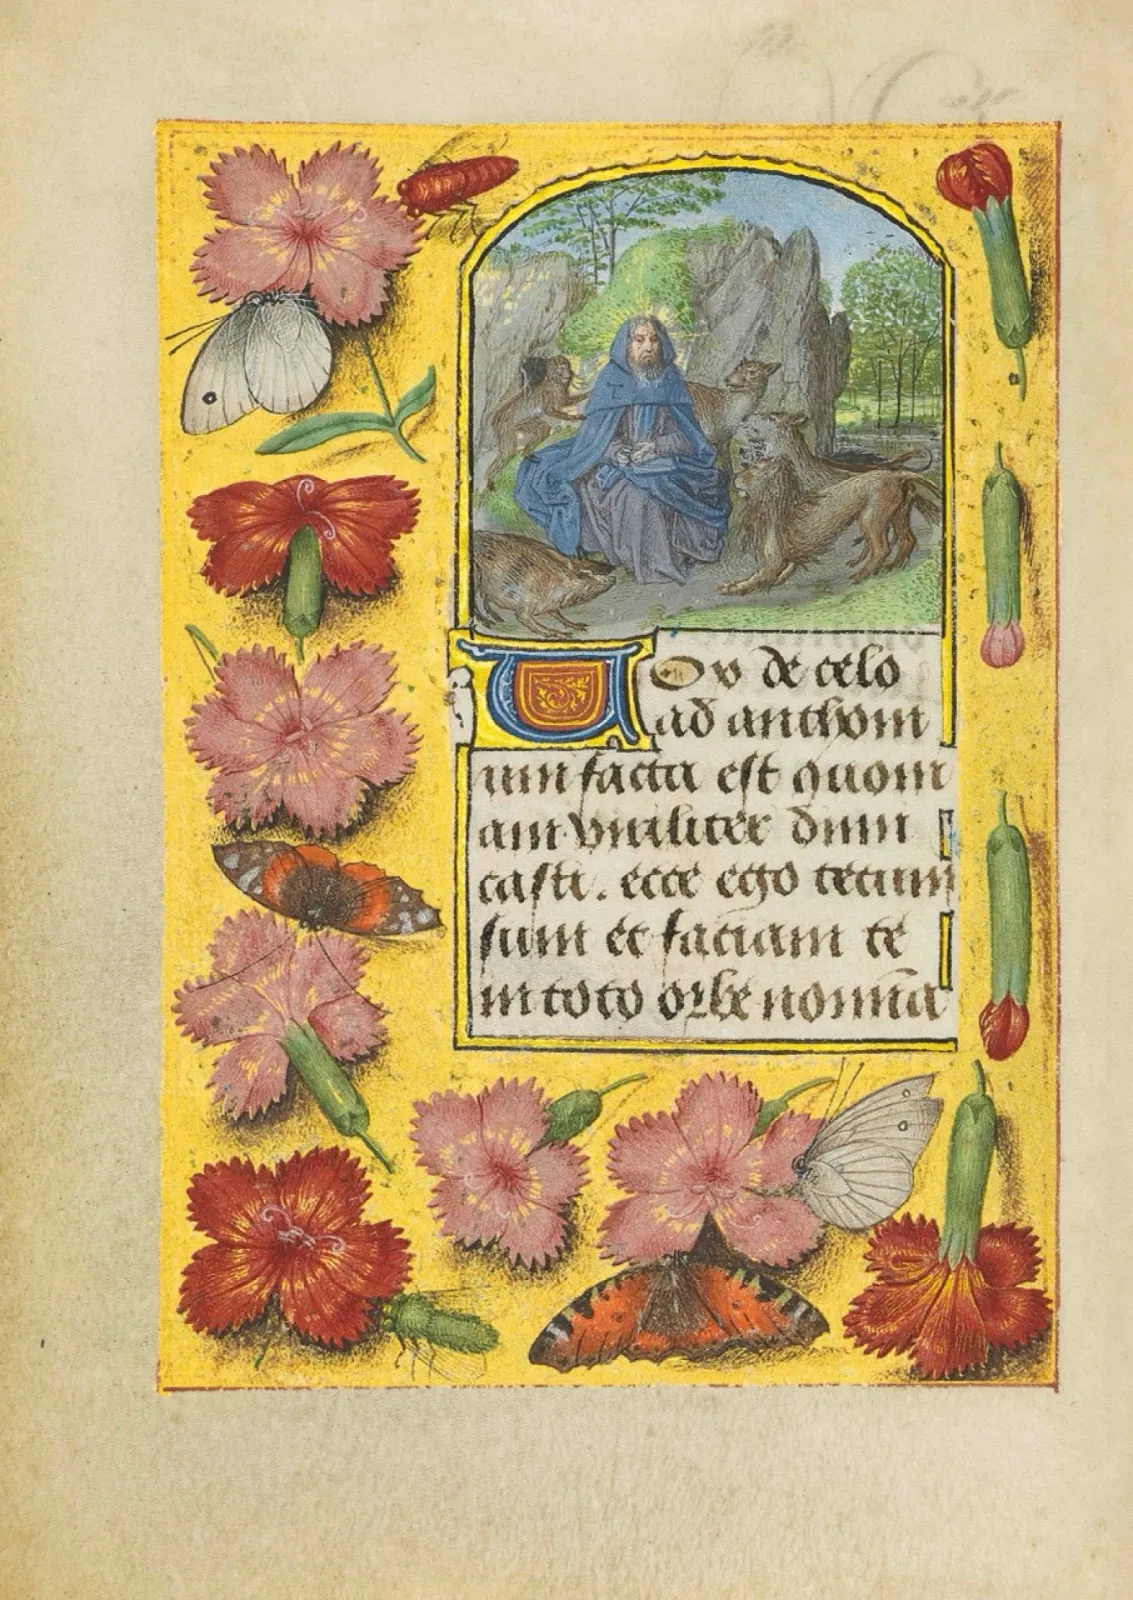 Vox de celo
ad anthoni
um facta est quoni
am viriliter dimi
casti. ecce ego tecum
sum et faciam te
in toto orbe nomina